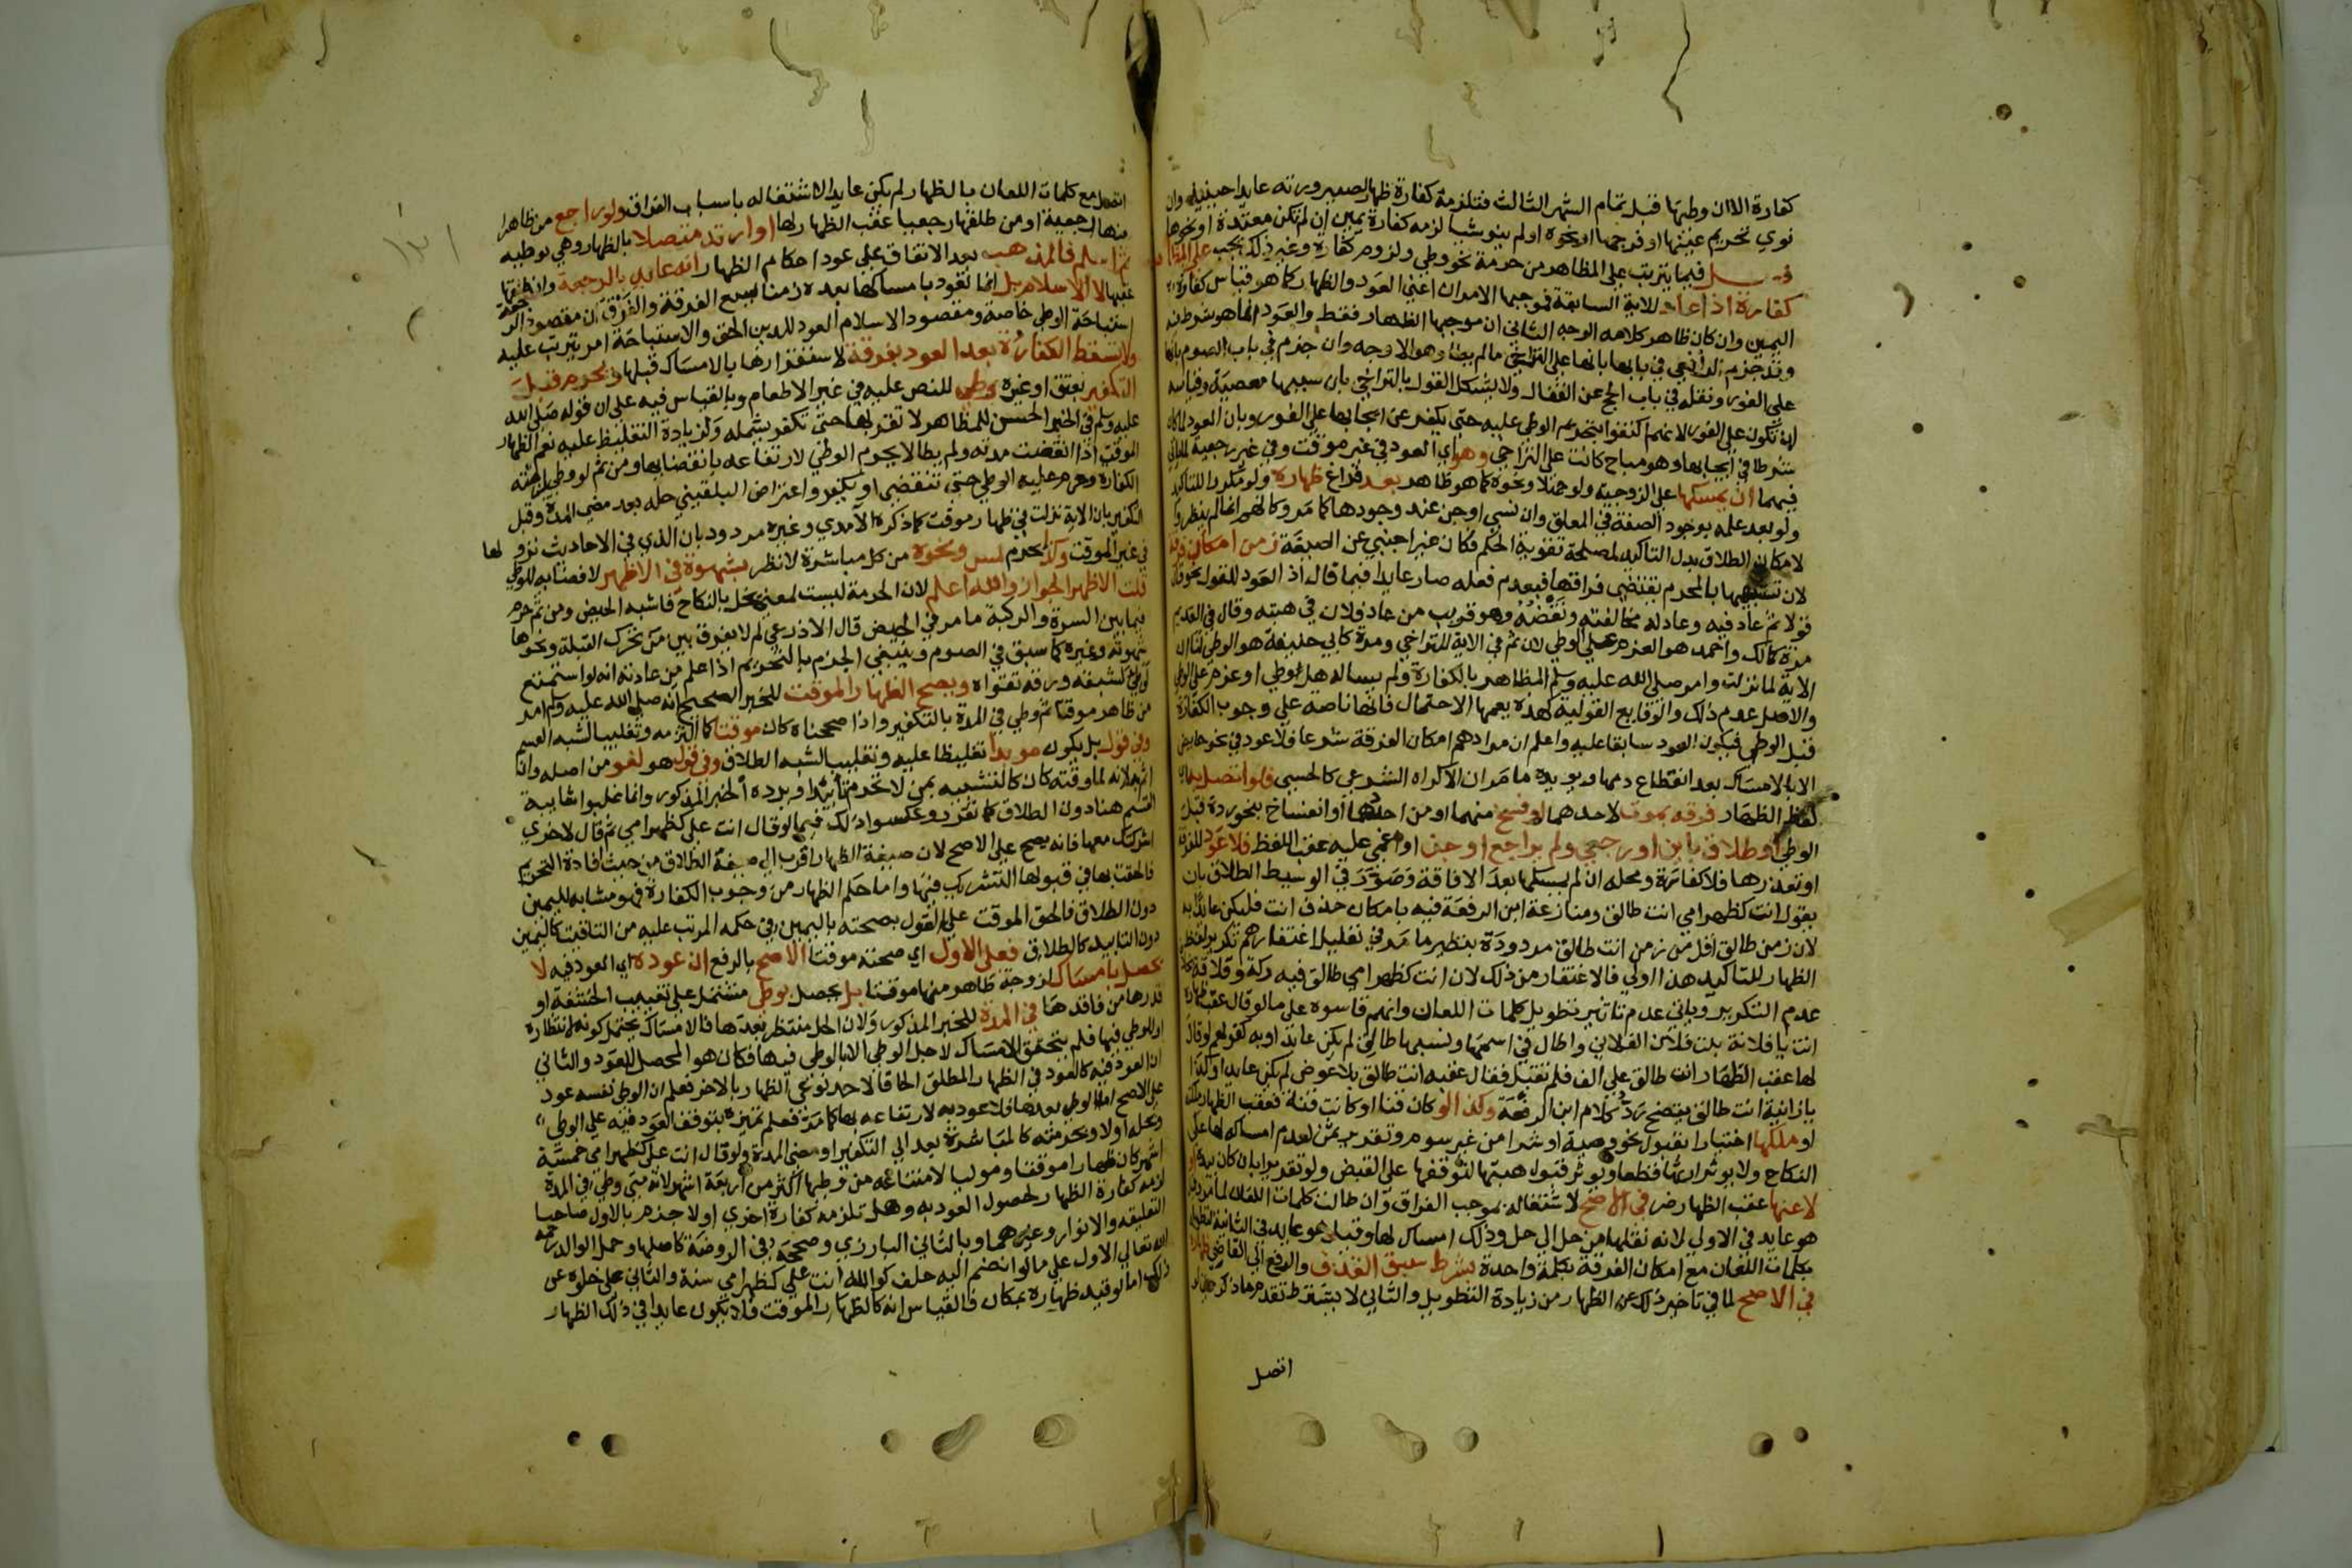 كفارة الا ان وطيها قبل تمام الشهر الثالث فتلزمه كفارة ظهار لصيرورته عايدا حينيذ وان
نوي تحريم عينها او فرجها او نحوه او لم ينو شيا لزمه كفارة يمين ان لم تكن معتدة او نحوها
فصل فيما يترتب على المظاهر من حرمة نحو وطي ولزوم كفارة وغير ذلك يجب على المظاهر
كفارة اذا عاد للاية السابقة فموجبها الامران اعني العود والظهار كما هو قياس كفارة
اليمين وان كان ظاهر كلامه الوجه الثاني ان موجبها الظهار فقط والعود انما هو شرط فيه
وقد جزم الرافعي في بابها بانها على التراخي ما لم يطا وهو الاوجه وان جزم في باب الصوم بانها
على الفور ونقله في باب الحج عن القفال ولا يشكل القول بالتراخي بان سببها معصية وقياسه
ان تكون على الفور لانهم اكتفوا بتحريم الوطي عليه حتى يكفر عن ايجابها على الفور وبان العود لما كان
شرطا في ايجابها وهو مباح كانت على التراخي وهو اي العود في غير موقت وفي غير رجعية لما ياتي
فيهما ان يمسكها على الزوجية ولو جهلا ونحوه كما هو ظاهر بعد فراغ ظهاره ولو مكررا للتاكيد
ولو بعد علمه بوجود الصفة في المعلق وان نسي او جن عند وجودها كما مر وكانهم انما لم ينظروا
لامكان الطلاق بدل التاكيد لمصلحة تقوية الحكم فكان غير اجنبي عن الصيغة زمن امكان فرقة
لان تشبيهها بالمحرم يقتضي فراقها فبعدم فعله صار عايدا فيما قال اذ العود للقول نحو قال
قولا ثم عاد فيه وعاد له مخالفته ونقضه وهو قريب من عاد فلان في هبته وقال في القديم
مرة كمالك واحمد هو العزم على الوطي لان ثم في الاية للتراخي ومرة كابي حنيفة هو الوطي لنا ان
الاية لما نزلت وامر صلى الله عليه وسلم المظاهر بالكفارة ولم يساله هل وطي او عزم على الوطي
والاصل عدم ذلك والوقايع القولية كهذه يعمها الاحتمال فانها ناصة على وجوب الكفارة
قبل الوطي فيكون العود سابقا عليه واعلم ان مرادهم امكان الفرقة شرعا فلا عود في نحو حايض
الا بالامساك بعد انقطاع دمها ويويده ما مر ان الاكراه الشرعي كالحسي فلو اتصلت
لفظ الظهار فرقة بموت لاحدهما او فسخ منهما او من احدهما او انفساخ بنحو ردة قبل
الوطي او طلاق باين او رجعي ولم يراجع او جن او اغمي عليه عقب اللفظ فلا عود للفرقة
او تعذرها فلا كفارة ومحله ان لم يمسكها بعد الافاقة وصور في الوسيط الطلاق بان
يقول انت كظهر امي انت طالق ومنازعة ابن الرفعة فيه بامكان حذف انت فليكن عايدا به
لان زمن طالق اقل من زمن انت طالق مردودة بنظير ما مر في تعليل اغتفارهم تكرير لفظ
الظهار للتاكيد هذا اولى فالاغتفار من ذلك لان انت كظهر امي طالق فيه ركة وقلاقة
عدم التكرير وياتي عدم تاثير تطويل كلمات اللعان وانهم قاسوه على ما لو قال عقب
انت يا فلانة بنت فلان الفلاني واطال في اسمها ونسبها طالق لم يكن عايدا وبه كقولهم لو قال
لها عقب الظهار انت طالق على الف فلم تقبل فقال عقبه انت طالق بلا عوض لم يكن عايدا وكذا
يا زانية انت طالق يتضح رد كلام ابن الرفعة وكذا لو كان قنا او كانت قنة فعقب الظهار ملكته
او ملكها اختيارا بقبول نحو وصية او شرا من غير سوم وتقدير ثمن لعدم امساكه لها على
النكاح ولا يوثر ارثها قطعا ولا يوثر قبول هبتها لتوقفها على القبض ولو تقديرا بان كان بيده او
لاعنها عقب الظهار ضر في الاصح لاشتغاله بموجب الفراق وان طالت كلمات اللعان لما تقرر وقيل
هو عايد في الاولى لانه نقلها من حل الى حل وذلك امساك لها وقيل هو عايد في الثانية لتطويله
بكلمات اللعان مع امكان الفرقة بكلمة واحدة بشرط سبق القذف والرفع الى القاضي ظهاره
في الاصح لما في تاخير ذلك عن الظهار من زيادة التطويل والثاني لا يشترط تقدم ما ذكر
اتصل
اتصل مع كلمات اللعان بالظهار لم يكن عايدا لاشتغاله باسباب الفراق ولو راجع من ظاهر
منها الرجعية او من طلقها رجعيا عقب الظهار لها او ارتد متصلا بالظهار وهي موطيه
ثم اسلم فالمذهب بعد الاتفاق على عود احكام الظهار انه عايد بالرجعة وان طلقها
عقبها لا الاسلام بل انما تعود بامساكها بعده زمنا يسع الفرقة والفرق ان مقصود الرجعة
استباحة الوطي خاصة ومقصود الاسلام العود للدين الحق والاستباحة امر يترتب عليه
ولا تسقط الكفارة بعد العود بفرقة لاستقرارها بالامساك قبلها ويحرم قبل
التكفير بعتق او غيره وطي للنص عليه في غير الاطعام وبالقياس فيه على ان قوله صلى الله
عليه وسلم في الخبر الحسن للمظاهر لا تقربها حتى تكفر يشمله ولزيادة التغليظ عليه نعم الظهار
الموقت اذا انقضت مدته ولم يطا لا يحرم الوطي لارتفاعه بانقضايها ومن ثم لو وطي لزمته
الكفارة وحرم عليه الوطي حتى تنقضي او يكفر واعتراض البلقيني حله بعد مضي المدة وقبل
التكفير بان الاية نزلت في ظهار موقت كما ذكره الامدي وغيره مردود بان الذي في الاحاديث نزولها
في غير الموقت وكذا يحرم لمس ونحوه من كل مباشرة لا نظر بشهوة في الاظهر لافضايه للوطي
قلت الاظهر الجواز والله اعلم لان الحرمة ليست لمعنى يخل بالنكاح فاشبه الحيض ومن ثم حرم
فيما بين السرة والركبة ما مر في الحيض قال الاذرعي لم لا يفرق بين من تحرك القبلة ونحوها
شهوته وغيره كما سبق في الصوم وينبغي الجزم بالتحريم اذا علم من عادته انه لو استمتع
لوطي لشبقه ورقة تقواه ويصح الظهار الموقت للخبر الصحيح انه صلى الله عليه وسلم امر
من ظاهر موقتا ثم وطي في المدة بالتكفير واذا صححناه كان موقتا كما التزمه وتغليبا لشبه اليمين
وفي قول بل يكون موبدا تغليظا عليه وتغليبا لشبه الطلاق وفي قول هو لغو من اصله وان
اثم لانه لما وقته كان كالتشبيه بمن لا تحرم تابيدا ويرده الخبر المذكور وانما غلبوا شايبة
القسم هنا دون الطلاق كما تقرر وعكسوا ذلك فيما لو قال انت علي كظهر امي ثم قال لاخري
اشركتك معها فانه يصح على الاصح لان صيغة الظهار اقرب الى صيغة الطلاق من حيث افادة التحريم
فالحقت بها في قبولها التشريك فيها واما حكم الظهار من وجوب الكفارة فهو مشابه لليمين
دون الطلاق فالحق الموقت على القول بصحته باليمين في حكمه المرتب عليه من التاقيت كاليمين
دون التابيد كالطلاق فعلى الاول اي صحته موقتا الاصح بالرفع ان عوده اي العود فيه لا
يحصل بامساك لزوجة ظاهر منها موقتا بل يحصل بوطي مشتمل على تغييب الحشفة او
قدرها من فاقدها في المدة للخبر المذكور ولان الحل منتظر بعدها فالامساك يحتمل كونه لانتظاره
او للوطي فيها فلم يتحقق الامساك لاجل الوطي الا بالوطي فيها فكان هو المحصل للعود والثاني
ان العود فيه كالعود في الظهار المطلق الحاقا لاحد نوعي الظهار بالاخر فعلم ان الوطي نفسه عود
على الاصح اما الوطي بعدها فلا عود به لارتفاعه بها كما مر فعلم تميزه بتوقف العود فيه على الوطي
وبحله اولا وبحرمته كالمباشرة بعد الى التكفير او مضي المدة ولو قال انت علي كظهر امي خمسة
اشهر كان ظهارا موقتا وموليا لامتناعه من وطيها اكثر من اربعة اشهر لانه متى وطي في المدة
لزمه كفارة الظهار لحصول العود به وهل تلزمه كفارة اخري او لا جزم بالاول صاحب
التعليقة والانوار وغيرهما وبالثاني البارزي وصححه في الروضة كاصلها وحمل الوالد رحمه
الله تعالى الاول على ما لو انضم اليه حلف كوالله انت علي كظهر امي سنة والثاني على خلوه عن
ذلك اما لو قيد ظهاره بمكان فالقياس انه كالظهار الموقت فلا يكون عايدا في ذلك الظهار